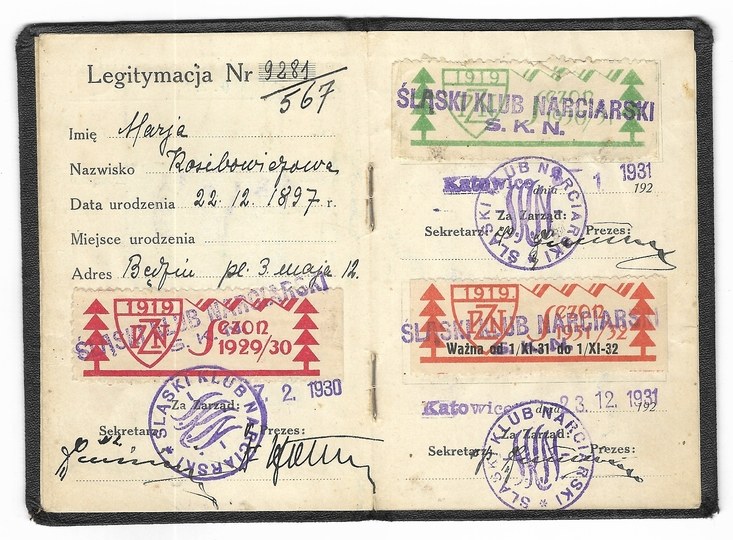 Legitymacja Nr 9281
567
Imię Marja
Nazwisko Kosibowiczowa
Data urodzenia 22.12.1897 r.
Miejsce urodzenia
Adres Będzin pl. 3. maja 12.
1919
PZN
Sezon
1929/30
ŚLĄSKI KLUB NARCIARSKI
7. 2. 1930
Za Zarząd:
Sekretarz: Prezes:
ŚLĄSKI KLUB NARCIARSKI
1919
PZN
Sezon
1930/31
ŚLĄSKI KLUB NARCIARSKI
S. K. N.
Katowice dnia 1 1931
192
Za Zarząd:
Sekretarz: Prezes:
ŚLĄSKI KLUB NARCIARSKI
1919.
PZN
Sezon
1931/32
ŚLĄSKI KLUB NARCIARSKI
S. K. N.
Ważna od 1/XI-31 do 1/XI-32
Katowice dnia 23. 12. 1931
192
Za Zarząd:
Sekretarz: Prezes:
ŚLĄSKI KLUB NARCIARSKI